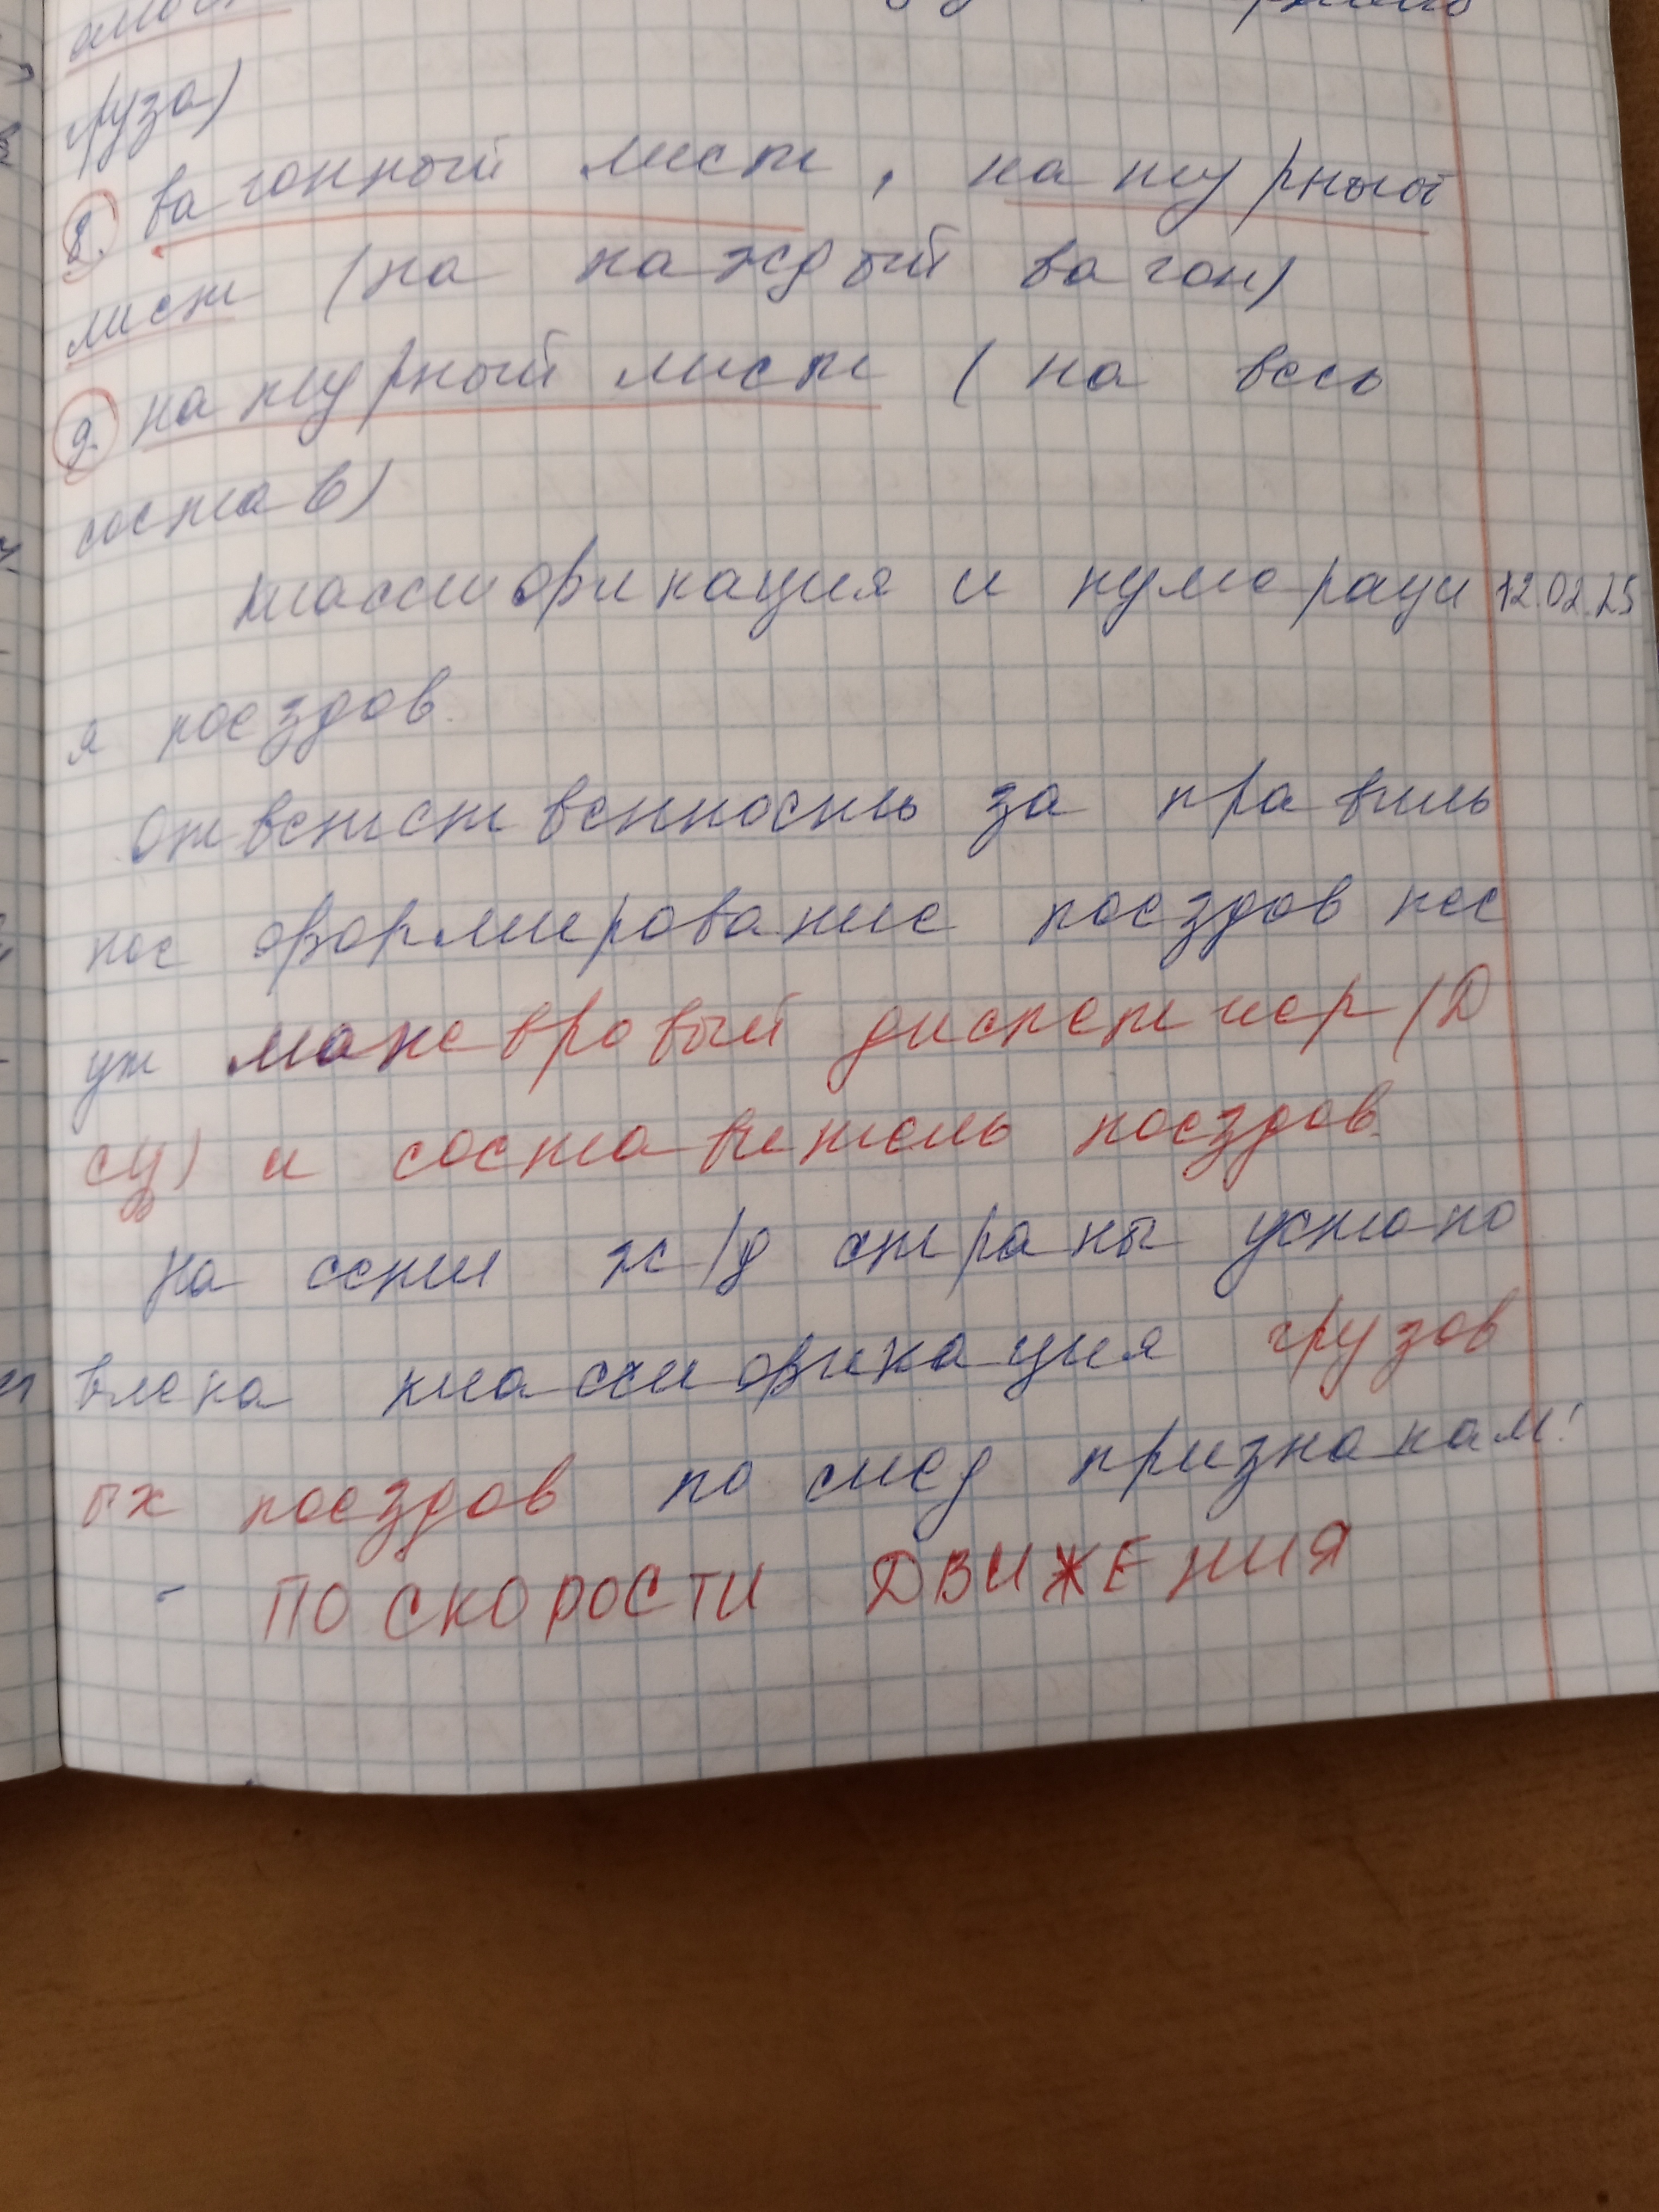 груза)
8. вагонный лист, натурный
лист (на каждый вагон)
9. натурный лист (на весь
состав)
Классификация и нумераци 12.02.25
я поездов.
Ответственность за правиль
ное формирование поездов нес
ут маневровый диспетчер (Д
СЦ) и составитель поездов.
На сети ж/д страны устано
влена классификация грузов
ых поездов по след признакам:
- ПО СКОРОСТИ ДВИЖЕНИЯ